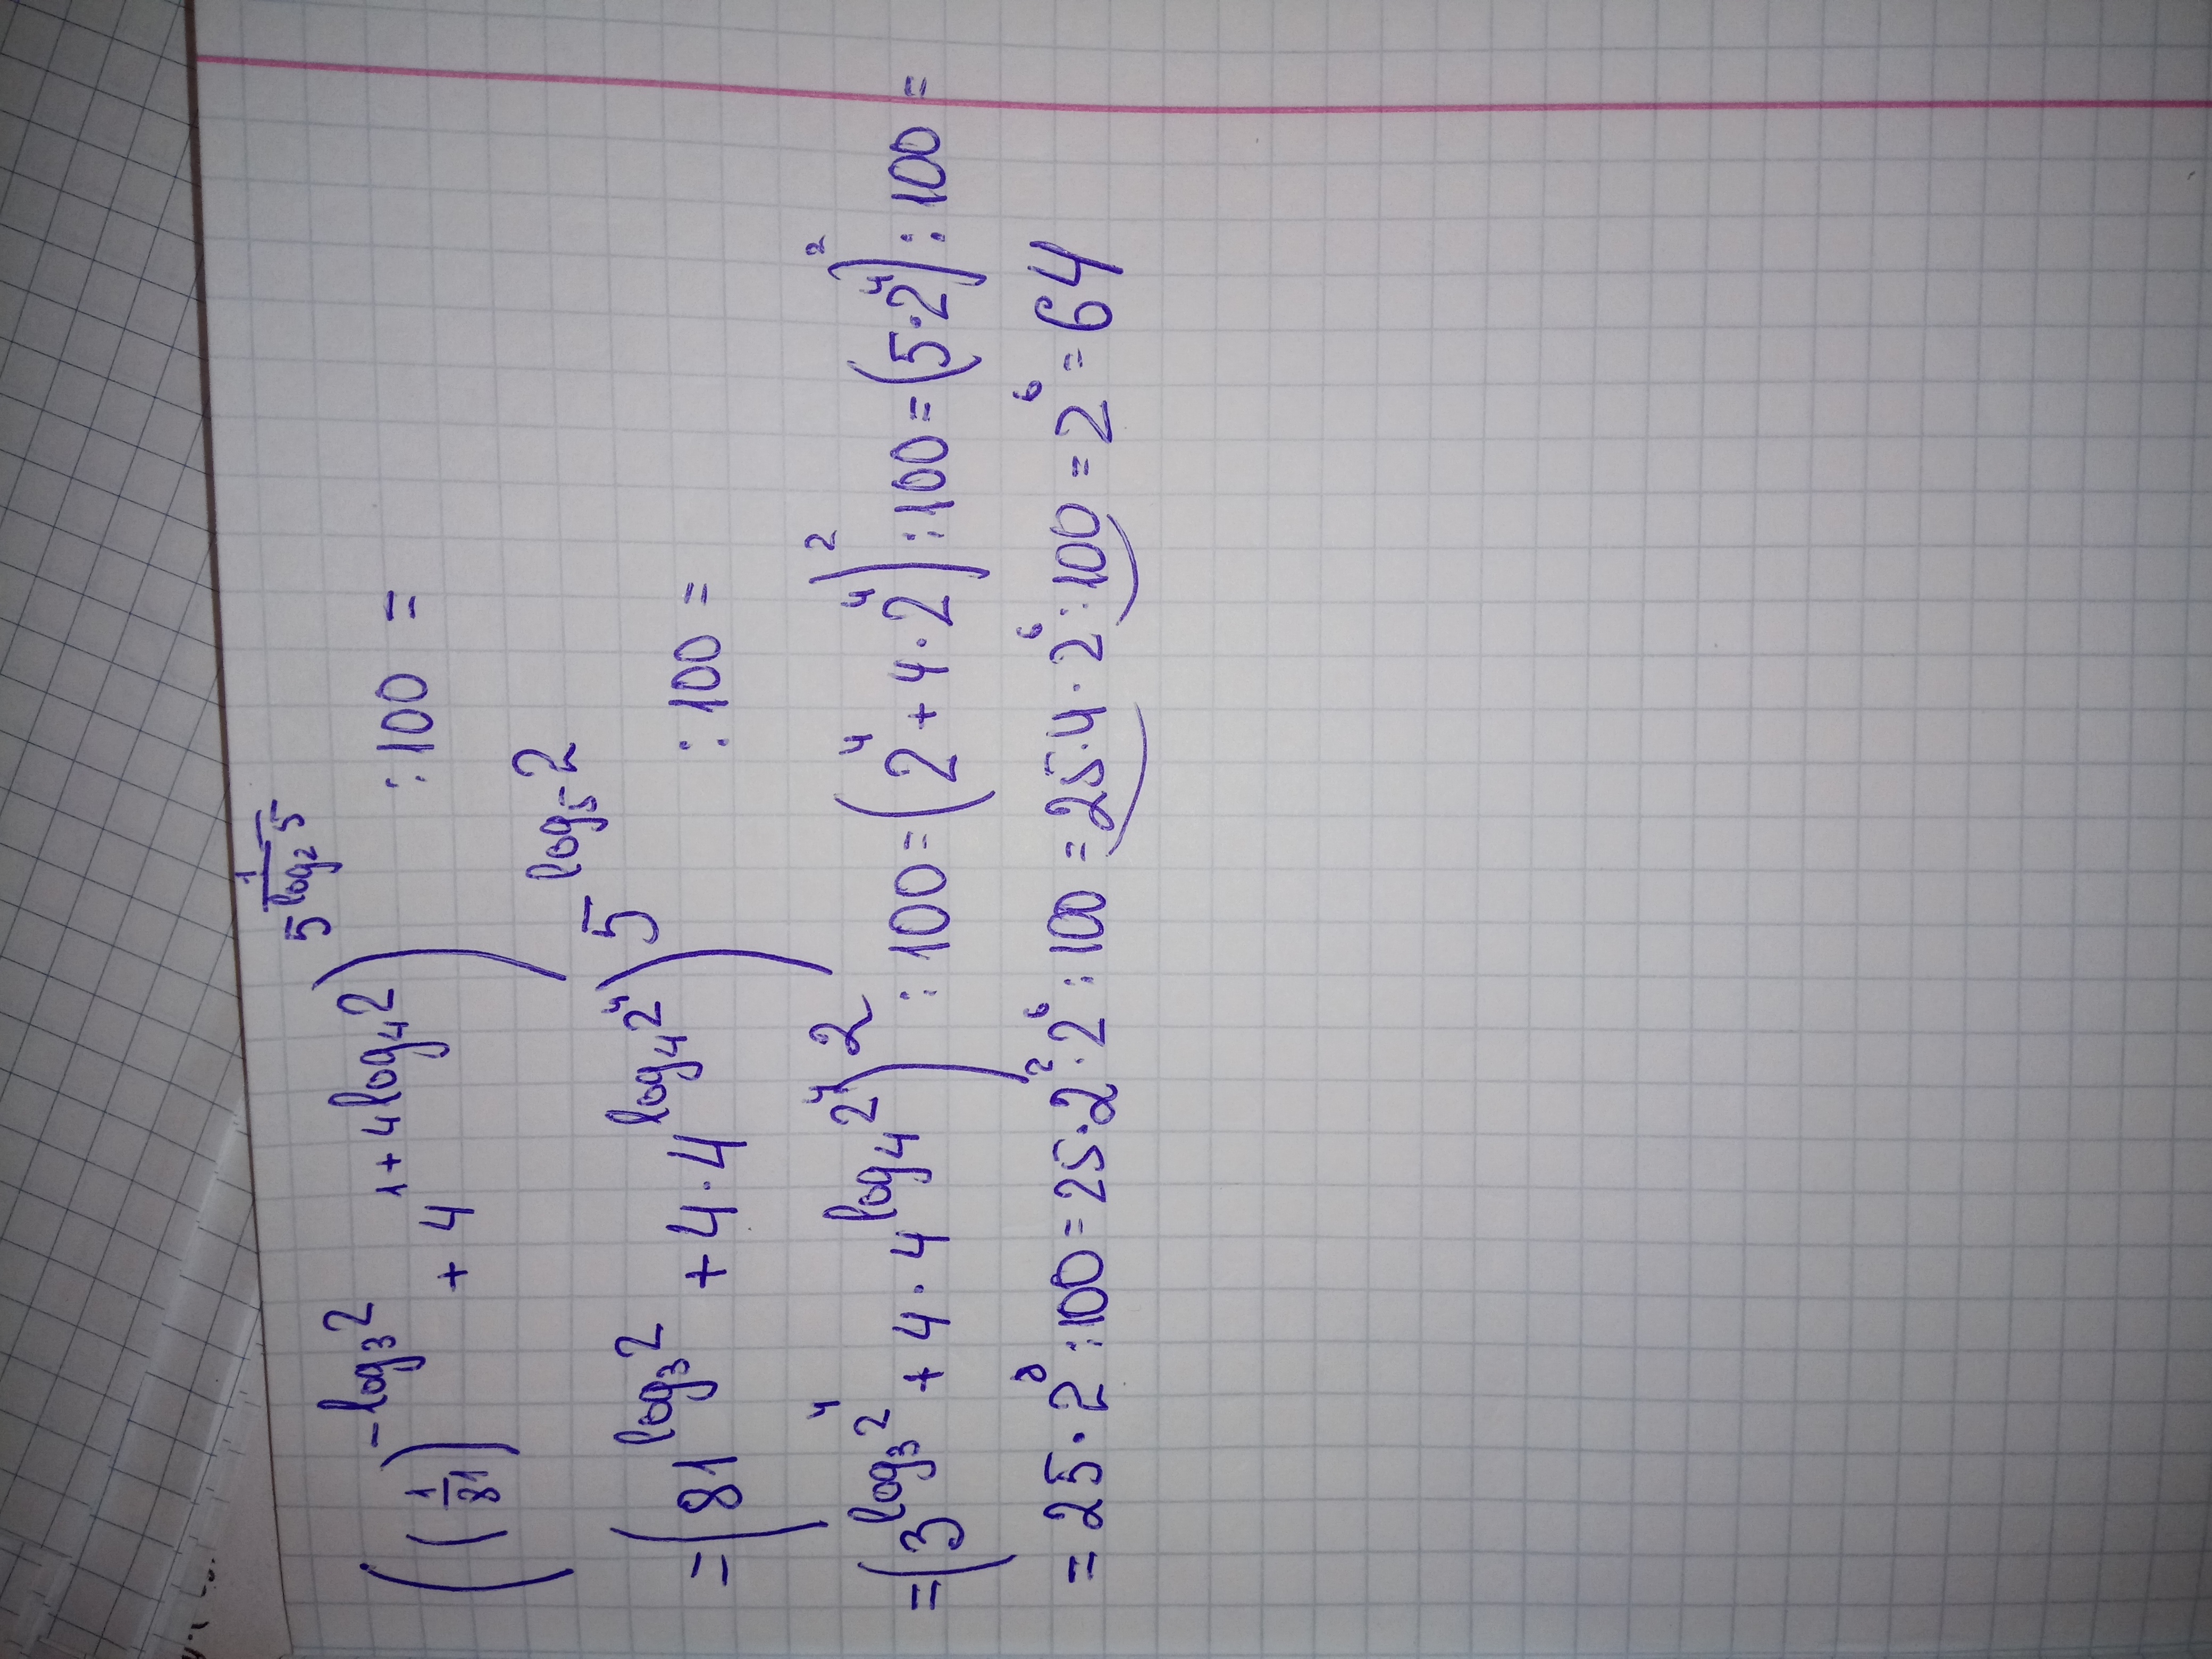 ((1/81)^(-log₃2) + 4^(1+4log₄2))^(5^(1/log₂5)) : 100 =
= (81^(log₃2) + 4·4^(log₄2⁴))^(5^(log₅2)) : 100 =
= (3^(log₃2⁴) + 4·4^(log₄2⁴))² : 100 = (2⁴ + 4·2⁴)² : 100 = (5·2⁴)² : 100 =
= 25·2⁸ : 100 = 25·2²·2⁶ : 100 = 25·4·2⁶ : 100 = 2⁶ = 64